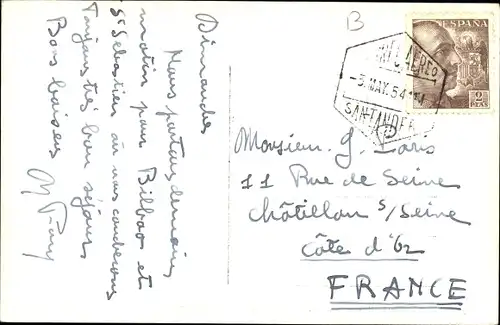 Dimanche
Nous partons demain
matin pour Bilbao et
St Sebastien où nous coucherons
Toujours très bon séjour
Bons baisers
B
ESPAÑA
2
PTAS
AEREO
-3.MAY.54
SANTANDER
Monsieur G.
11 Rue de Seine
Châtillon s/Seine
Côte d'Or
FRANCE